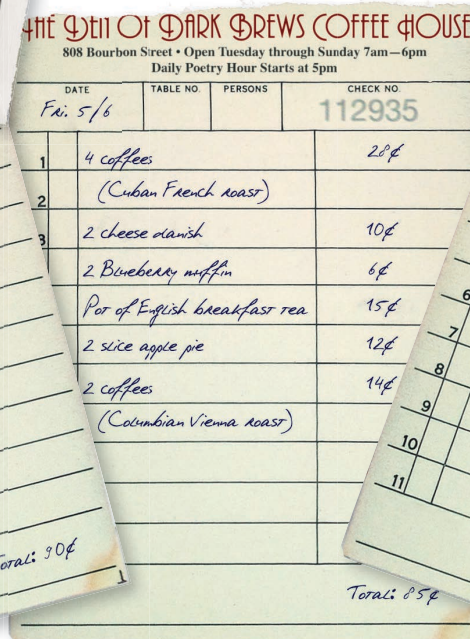 THE DEN OF DARK BREWS COFFEE HOUSE
808 Bourbon Street • Open Tuesday through Sunday 7am—6pm
Daily Poetry Hour Starts at 5pm
DATE TABLE NO. PERSONS CHECK NO.
Fri. 5/6 112935
1 4 coffees 28¢
2 (Cuban French roast)
3 2 cheese danish 10¢
2 Blueberry muffin 6¢
Pot of English breakfast tea 15¢
2 slice apple pie 12¢
2 coffees 14¢
(Columbian Vienna roast)
Total: 85¢
Total: 90¢
1
6
7
8
9
10
11